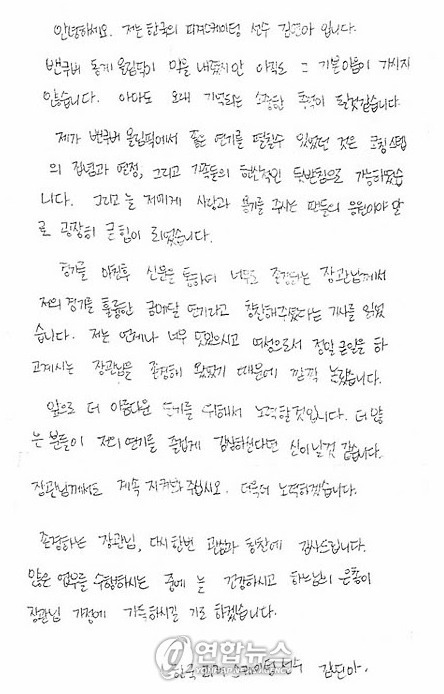 안녕하세요. 저는 한국의 피겨스케이팅 선수 김연아 입니다.
밴쿠버 동계 올림픽이 막을 내렸지만 아직도 그 기분이 가시지
않습니다. 아마도 오래 기억되는 소중한 추억이 될것같습니다.
제가 밴쿠버 올림픽에서 좋은 연기를 펼칠수 있었던 것은 코칭스탭
의 집념과 열정, 그리고 가족들의 헌신적인 뒷받침으로 가능하였습
니다. 그리고 늘 저에게 사랑과 용기를 주시는 팬들의 응원이야 말
로 굉장히 큰 힘이 되었습니다.
경기를 마친후 신문을 통하여 너무도 존경하는 장관님께서
저의 경기를 훌륭한 금메달 연기라고 칭찬해주셨다는 기사를 읽었
습니다. 저는 언제나 너무 멋있으시고 여성으로서 정말 큰일을 하
고계시는 장관님을 존경해 왔었기 때문에 깜짝 놀랐습니다.
앞으로 더 아름다운 연기를 위해서 노력할것입니다. 더 많
은 분들이 저의 연기를 즐겁게 감상하신다면 신이날것 같습니다.
장관님께서도 계속 지켜봐 주십시오. 더욱더 노력하겠습니다.
존경하는 장관님, 다시한번 관심과 칭찬에 감사드립니다.
많은 업무를 수행하시는 중에 늘 건강하시고 하느님의 은총이
장관님 가정에 가득하시길 기도 하겠습니다.
한국 피겨 스케이팅 선수 김연아.
연합뉴스